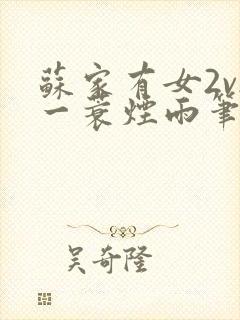 蘇家有女2v
一蓑煙雨筆
吴奇隆